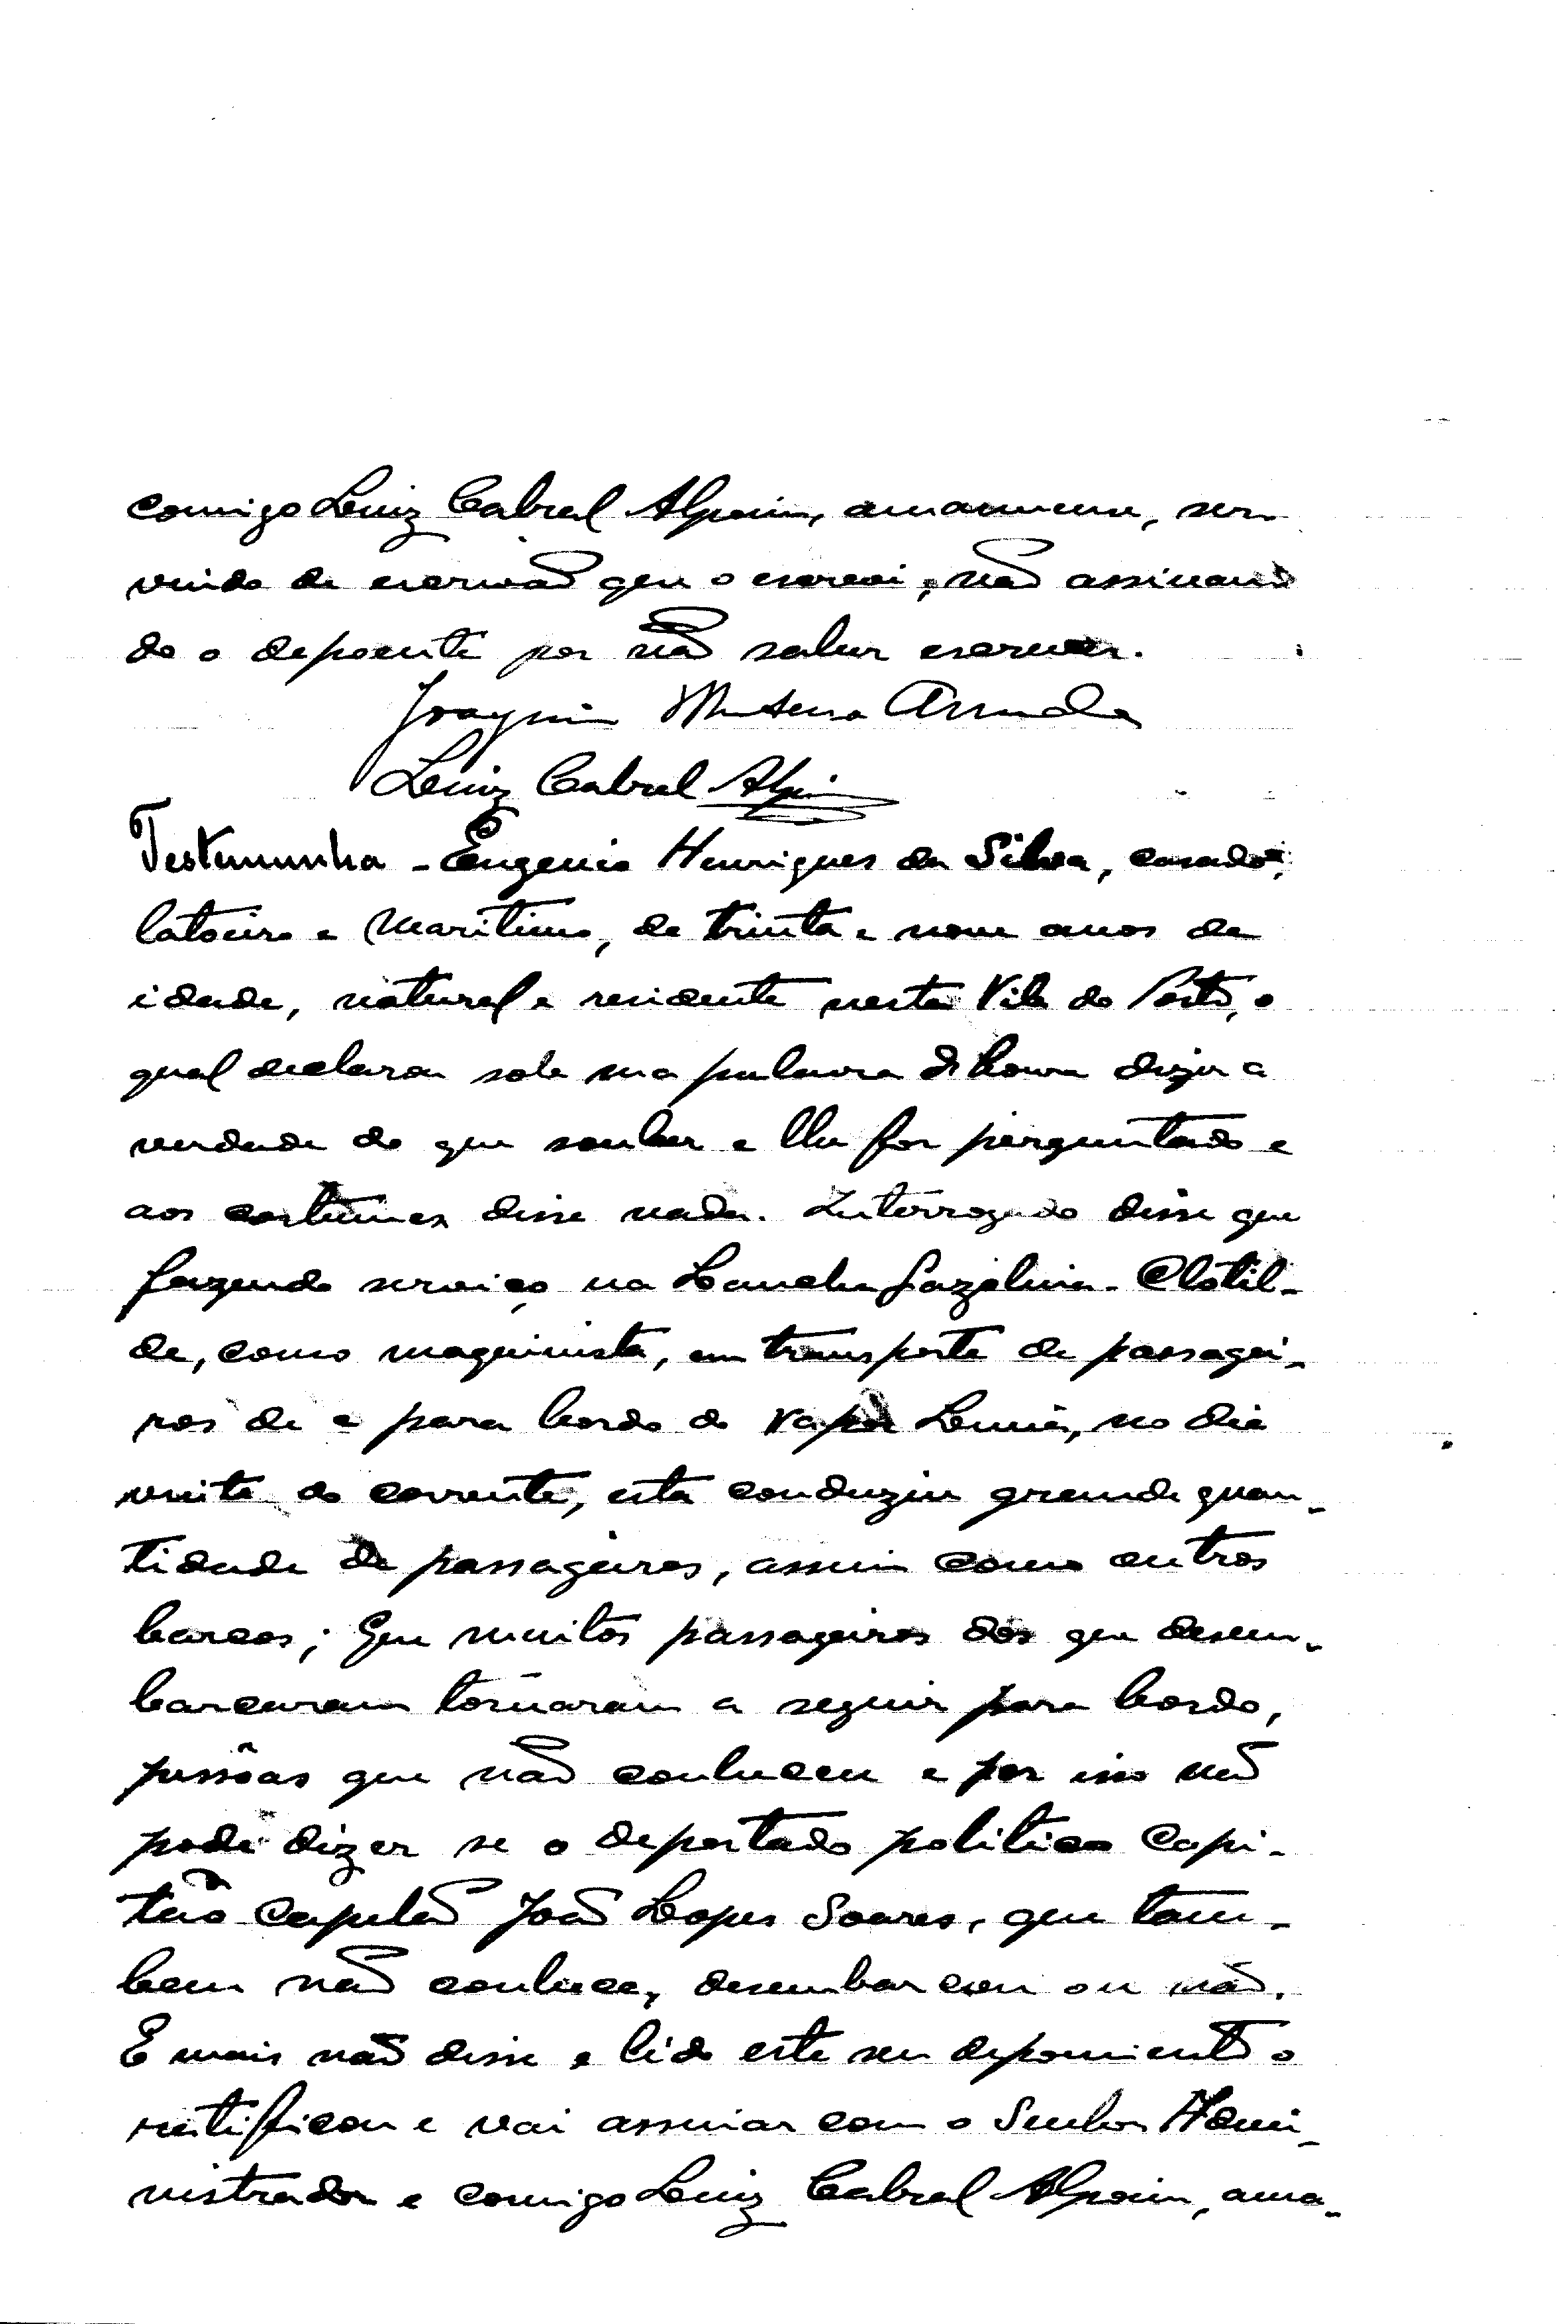 comigo Luiz Cabral Alpoim, amanuense, ser-
vindo de escrivão que o escrevi, não assinan
do o depoente por não saber escrever.
Joaquim Monteiro Arruda
Luiz Cabral Alpoim
Testemunha - Eugenio Henriques da Silva, casado,
latoeiro e maritimo, de trinta e nove anos de
idade, natural e residente nesta Vila do Porto, o
qual declarou sob sua palavra de honra dizer a
verdade do que souber e lhe for perguntado e
aos costumes disse nada. Interrogado disse que
fazendo serviço na Lancha Gazolina - Clotil-
de, como maquinista, em transporte de passagei-
ros de e para bordo do vapor Lima, no dia
vinte do corrente, esta conduziu grande quan-
tidade de passageiros, assim como outros
barcos; Que muitos passageiros dos que desem-
barcaram tornaram a seguir para bordo,
pessôas que não conheceu e por isso não
pode dizer se o deportado politico Capi-
tão Capelão João Lopes Soares, que tam-
bem não conhece, desembarcou ou não.
E mais não disse e lido este seu depoimento o
ratificou e vai assinar com o Senhor Admi-
nistrador e comigo Luiz Cabral Alpoim, ama-